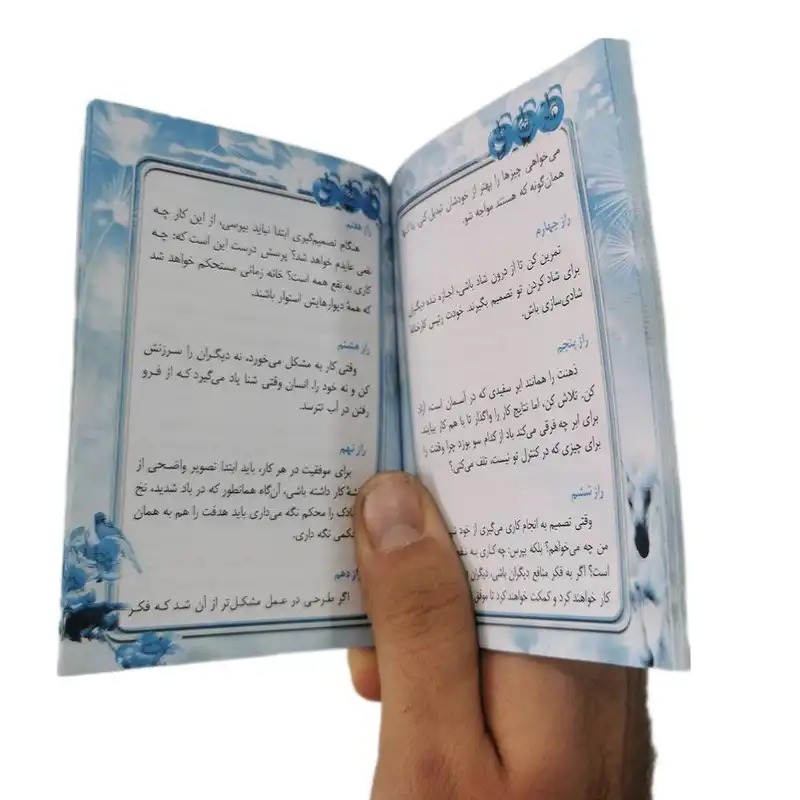 می‌خواهی چیزها را بهتر از خودشان تبدیل کنی، با آنها
همان‌گونه که هستند مواجه شو.
راز چهارم
تمرین کن تا از درون شاد باشی، اجازه نده دیگران
برای شاد کردن تو تصمیم بگیرند. خودت رئیس کارخانهٔ
شادی‌سازی باش.
راز پنجم
ذهنت را همانند ابر سفیدی که در آسمان است، آزاد
کن. تلاش کن، اما نتایج کار را واگذار تا با هم کار بیایند.
برای ابر چه فرقی می‌کند باد از کدام سو بوزد چرا وقتت را
برای چیزی که در کنترل تو نیست، تلف می‌کنی؟
راز ششم
وقتی تصمیم به انجام کاری می‌گیری از خود
من چه می‌خواهم؟ بلکه بپرس: چه کاری به نفع
است؟ اگر به فکر منافع دیگران باشی، دیگران
کار خواهند کرد و کمکت خواهند کرد تا موفق
راز هفتم
هنگام تصمیم‌گیری ابتدا نباید بپرسی، از این کار چه
نفعی عایدم خواهد شد؟ پرسش درست این است که: چه
کاری به نفع همه است؟ خانه زمانی مستحکم خواهد شد
که همهٔ دیوارهایش استوار باشند.
راز هشتم
وقتی کار به مشکل می‌خورد، نه دیگران را سرزنش
کن و نه خود را. انسان وقتی شنا یاد می‌گیرد که از فرو
رفتن در آب نترسد.
راز نهم
برای موفقیت در هر کار، باید ابتدا تصویر واضحی از
کار داشته باشی، آن‌گاه همانطور که در باد شدید، نخ
بادبادک را محکم نگه می‌داری باید هدفت را هم به همان
محکمی نگه داری.
راز دهم
اگر طرحی در عمل مشکل‌تر از آن شد که فکر